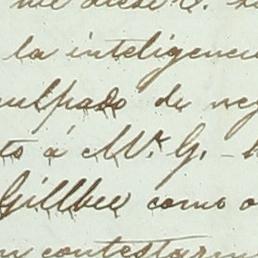 me diese
la inteligencia
culpado de neg
to á Mr. G. -
Gillbee como
contestarm